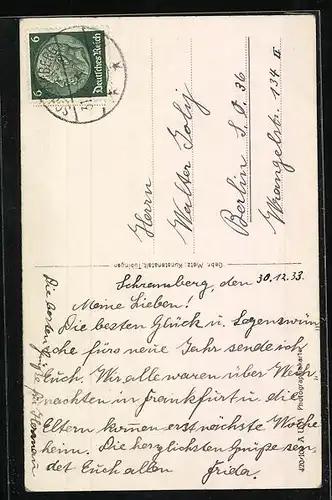 Deutsches Reich
6
6
Herrn
Walter Joly
Berlin S.O. 36
Wrangelstr. 134 II
Gebr. Metz, Kunstanstalt, Tübingen
Schramberg, den 30.12.33.
Meine Lieben!
Die besten Glück u. Segenswün
sche fürs neue Jahr sende ich
Euch. Wir alle waren über Weih
nachten in Frankfurt u. die
Eltern kommen erst nächste Woche
heim. Die herzlichsten Grüße sen-
det Euch allen Frida.
Die besten Grüße für Hermann
Photographiekarte